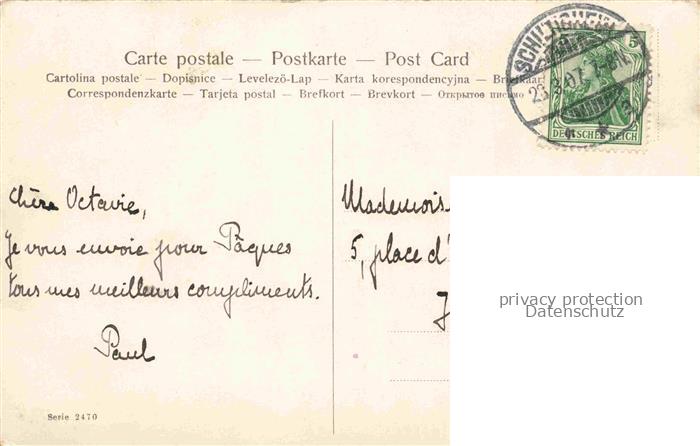 Carte postale — Postkarte — Post Card
Cartolina postale — Dopisnice — Levelező-Lap — Karta korespondencyjna — Briefkaar
Correspondenzkarte — Tarjeta postal — Brefkort — Brevkort — Открытое письмо
SCHILTIGHEIM
5
DEUTSCHES REICH
Chère Octavie,
Je vous envoie pour Pâques
tous mes meilleurs compliments.
Paul
Mademois
5, place d'
privacy protection
Datenschutz
Serie 2470